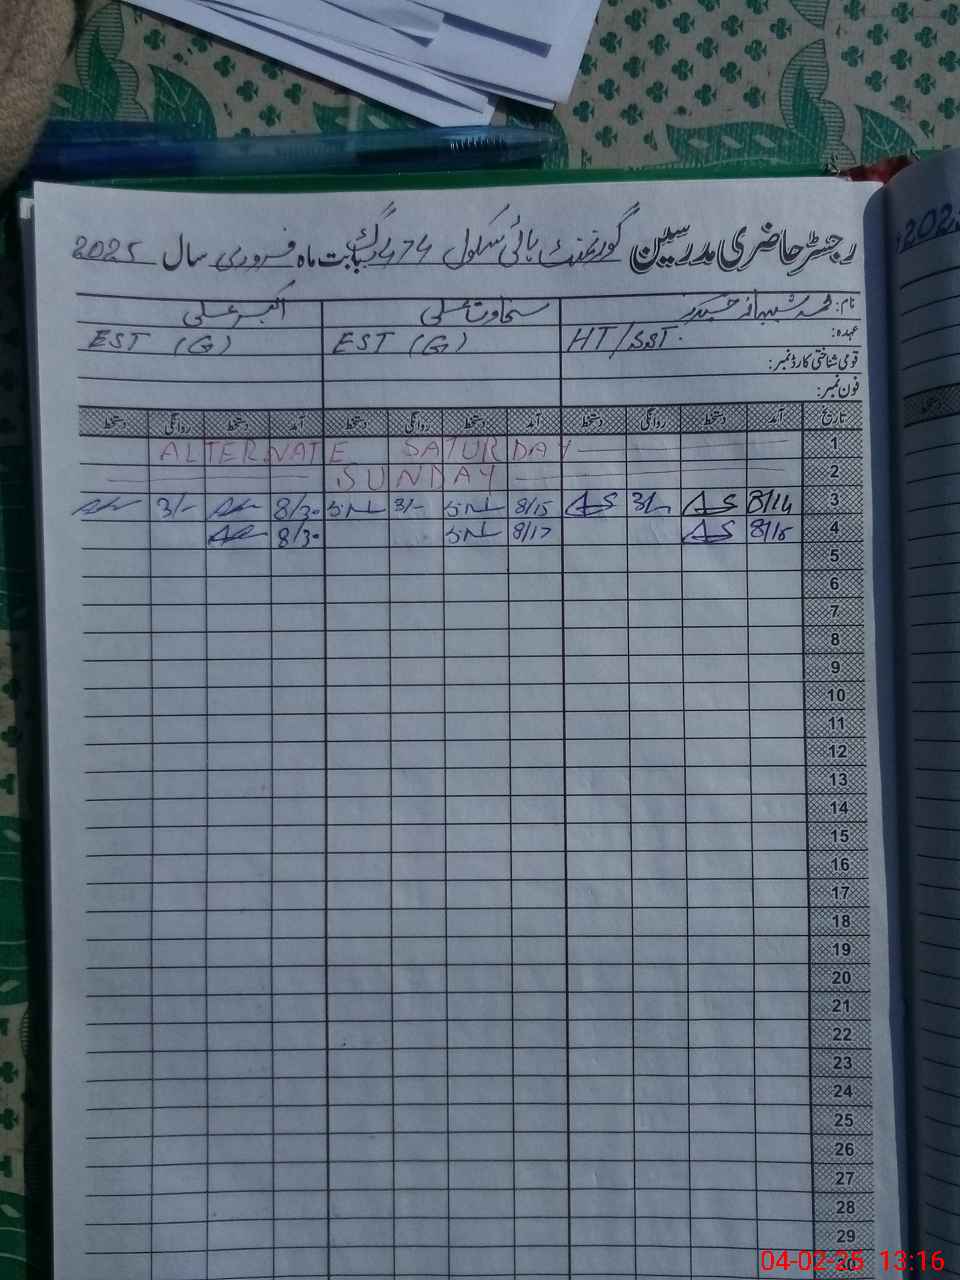 رجسٹر حاضری مدرسین گورنمنٹ ہائی سکول 74 بابت ماہ فروری سال 2025
نام: حیدر سخاوت علی اکبر علی
عہدہ: HT/SST EST (G) EST (G)
قومی شناختی کارڈ نمبر:
فون نمبر:
تاریخ آمد دستخط روانگی دستخط آمد دستخط روانگی دستخط آمد دستخط روانگی دستخط
1 ALTERNATE SATURDAY
2 SUNDAY
3 8/14 3/- 8/15 3/- 8/30 3/-
4 8/16 8/17 8/30
5
6
7
8
9
10
11
12
13
14
15
16
17
18
19
20
21
22
23
24
25
26
27
28
29
30
04-02-25 13:16